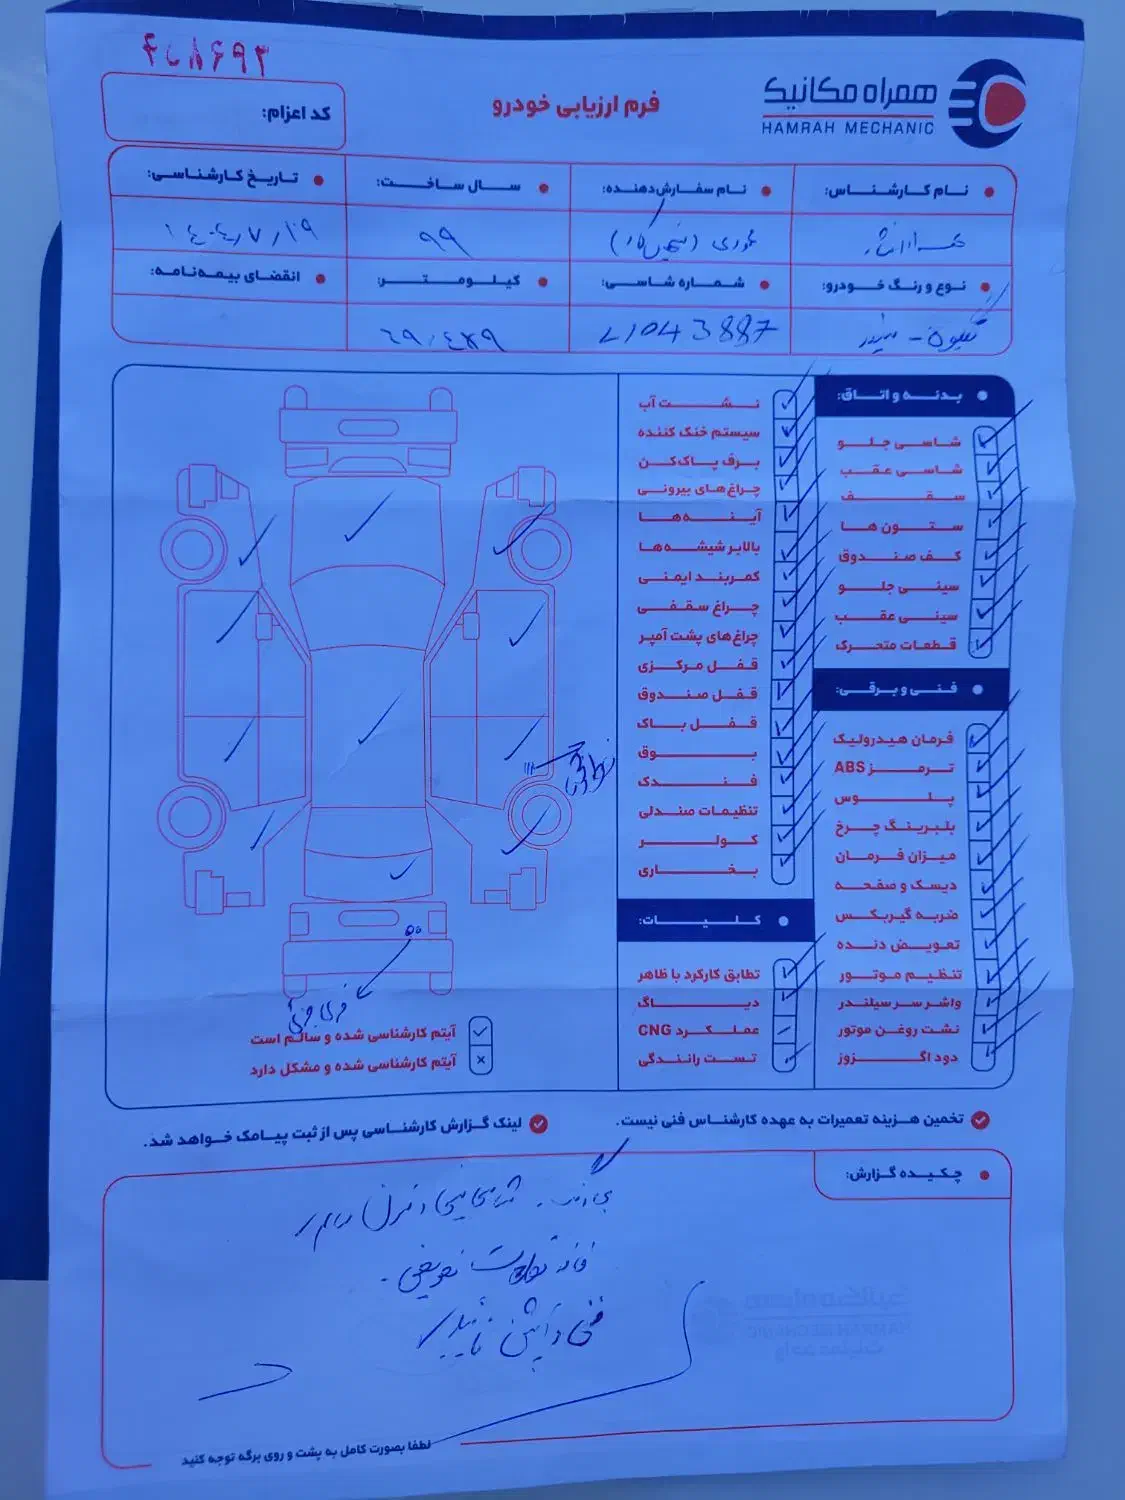 ۴۰۸۶۹۲
همراه مکانیک
HAMRAH MECHANIC
فرم ارزیابی خودرو
کد اعزام:
نام کارشناس:
نام سفارش‌دهنده:
سال ساخت:
تاریخ کارشناسی:
۹۹
۱۴۰۴/۷/۱۹
نوع و رنگ خودرو:
شماره شاسی:
کیلومتر:
انقضای بیمه‌نامه:
L1043887
بدنه و اتاق:
شاسی جلو
شاسی عقب
سقف
ستون ها
کف صندوق
سینی جلو
سینی عقب
قطعات متحرک
فنی و برقی:
فرمان هیدرولیک
ترمز ABS
پلوس
بلبرینگ چرخ
میزان فرمان
دیسک و صفحه
ضربه گیربکس
تعویض دنده
تنظیم موتور
واشر سر سیلندر
نشت روغن موتور
دود اگزوز
نشت آب
سیستم خنک کننده
برف پاک‌کن
چراغ‌های بیرونی
آینه‌ها
بالابر شیشه‌ها
کمربند ایمنی
چراغ سقفی
چراغ‌های پشت آمپر
قفل مرکزی
قفل صندوق
قفل باک
بوق
فندک
تنظیمات صندلی
کولر
بخاری
کلیات:
تطابق کارکرد با ظاهر
دیاگ
عملکرد CNG
تست رانندگی
آیتم کارشناسی شده و سالم است
آیتم کارشناسی شده و مشکل دارد
تخمین هزینه تعمیرات به عهده کارشناس فنی نیست.
لینک گزارش کارشناسی پس از ثبت پیامک خواهد شد.
چکیده گزارش:
لطفا بصورت کامل به پشت و روی برگه توجه کنید